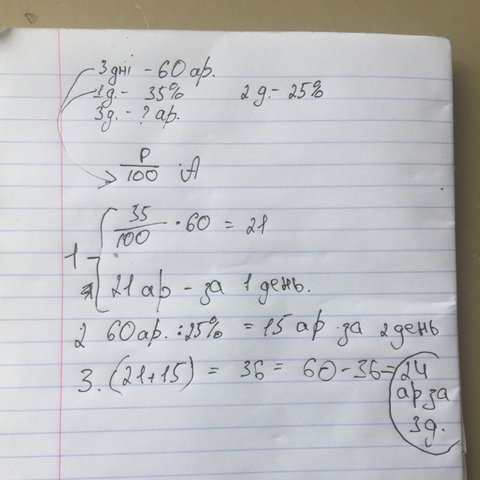 3 дні - 60 ар.
1 д. - 35% 2 д. - 25%
3 д. - ? ар.
P/100 · A
1 - { 35/100 · 60 = 21
21 ар - за 1 день.
2 60 ар. : 25% = 15 ар за 2 день
3. (21+15) = 36 = 60 - 36 = 24
ар за
3 д.